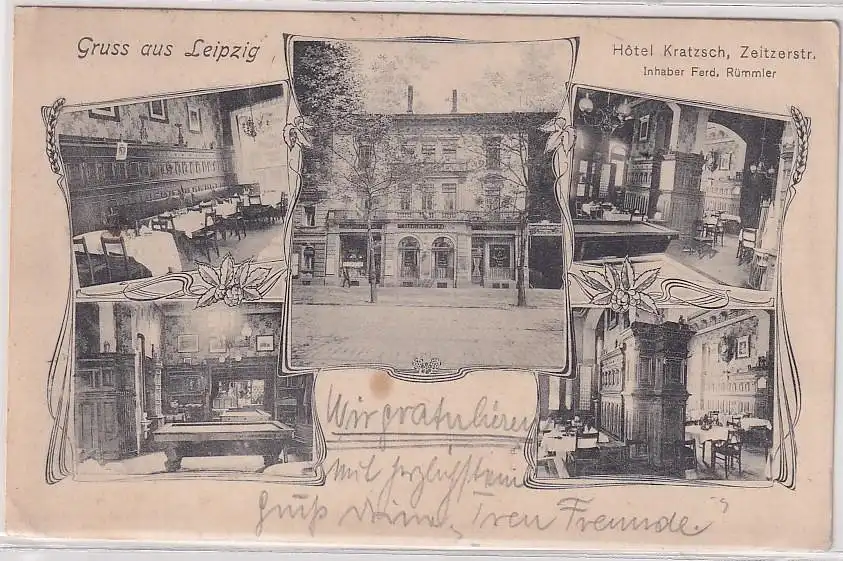 Gruss aus Leipzig
Hôtel Kratzsch, Zeitzerstr.
Inhaber Ferd. Rümmler
Wir gratulieren
mit herzlichstem
Gruß Deine Freunde.